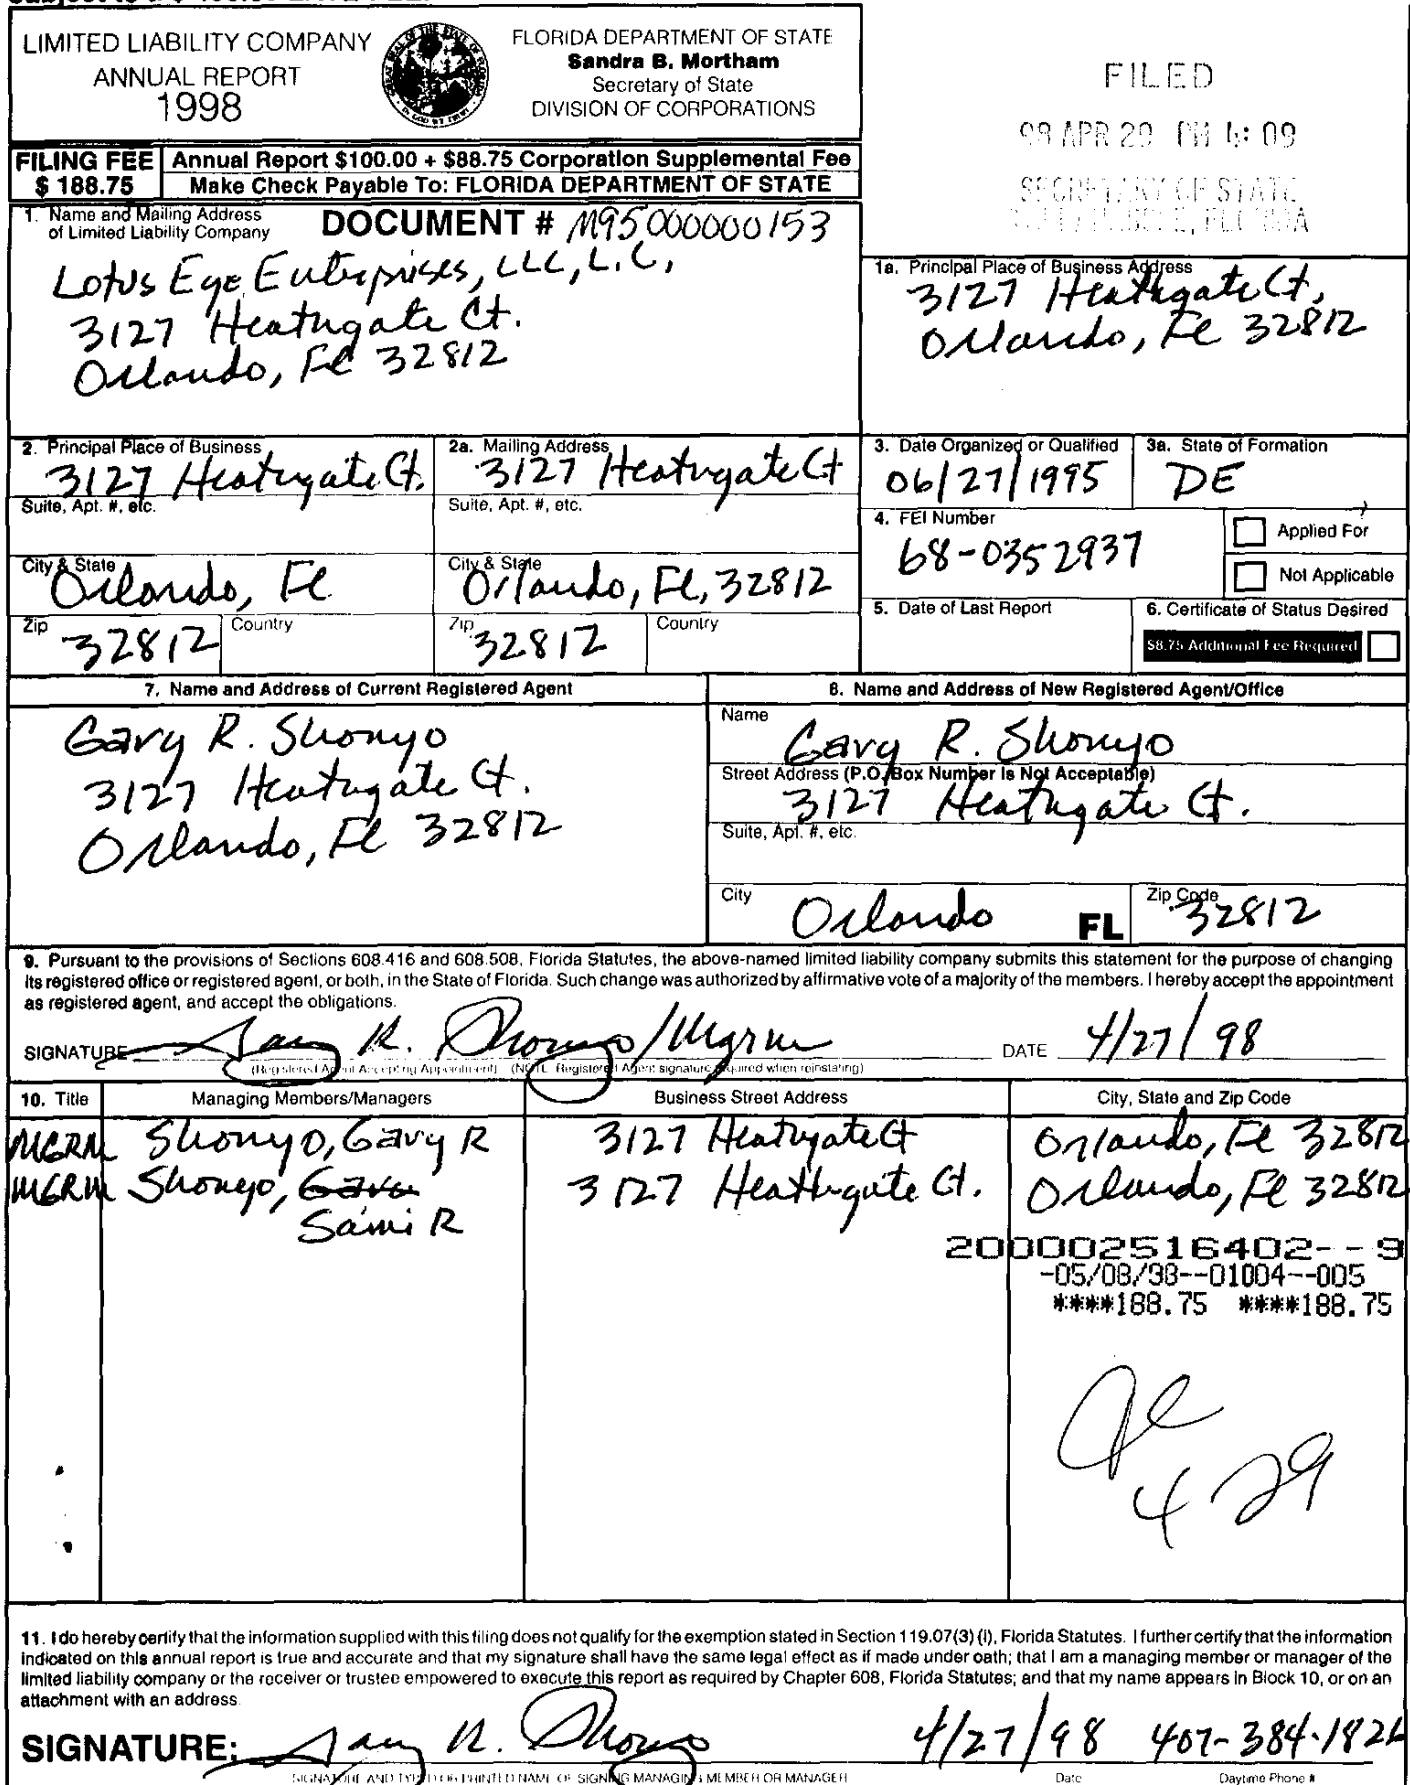 LIMITED LIABILITY COMPANY
ANNUAL REPORT
1998
FLORIDA DEPARTMENT OF STATE
Sandra B. Mortham
Secretary of State
DIVISION OF CORPORATIONS
FILED
98 APR 29 PM 4:09
SECRETARY OF STATE
FILING FEE
$ 188.75
Annual Report $100.00 + $88.75 Corporation Supplemental Fee
Make Check Payable To: FLORIDA DEPARTMENT OF STATE
1. Name and Mailing Address
of Limited Liability Company
DOCUMENT # M95000000153
Lotus Eye Enterprises, LLC, L.C,
3127 Heathgate Ct.
Orlando, Fl 32812
1a. Principal Place of Business Address
3127 Heathgate Ct,
Orlando, Fl 32812
2. Principal Place of Business
3127 Heathgate Ct.
Suite, Apt. #, etc.
City & State
Orlando, Fl
Zip
32812
Country
2a. Mailing Address
3127 Heathgate Ct
Suite, Apt. #, etc.
City & State
Orlando, Fl, 32812
Zip
32812
Country
3. Date Organized or Qualified
06/27/1995
3a. State of Formation
DE
4. FEI Number
68-0352937
Applied For
Not Applicable
5. Date of Last Report
6. Certificate of Status Desired
$8.75 Additional Fee Required
7. Name and Address of Current Registered Agent
Gary R. Shonyo
3127 Heathgate Ct.
Orlando, Fl 32812
8. Name and Address of New Registered Agent/Office
Name
Gary R. Shonyo
Street Address (P.O. Box Number Is Not Acceptable)
3127 Heathgate Ct.
Suite, Apt. #, etc.
City
Orlando FL
Zip Code
32812
9. Pursuant to the provisions of Sections 608.416 and 608.508, Florida Statutes, the above-named limited liability company submits this statement for the purpose of changing
its registered office or registered agent, or both, in the State of Florida. Such change was authorized by affirmative vote of a majority of the members. I hereby accept the appointment
as registered agent, and accept the obligations.
SIGNATURE Gary R. Shonyo/Mgrm DATE 4/27/98
(Registered Agent Accepting Appointment) (NOTE Registered Agent signature required when reinstating)
10. Title Managing Members/Managers Business Street Address City, State and Zip Code
MGRM Shonyo, Gary R 3127 Heathgate Ct Orlando, Fl 32812
MGRM Shonyo, Gary 3127 Heathgate Ct. Orlando, Fl 32812
Sami R
200002516402--9
-05/08/98--01004--005
****188.75 ****188.75
4 29
11. I do hereby certify that the information supplied with this filing does not qualify for the exemption stated in Section 119.07(3) (i), Florida Statutes. I further certify that the information
indicated on this annual report is true and accurate and that my signature shall have the same legal effect as if made under oath; that I am a managing member or manager of the
limited liability company or the receiver or trustee empowered to execute this report as required by Chapter 608, Florida Statutes; and that my name appears in Block 10, or on an
attachment with an address.
SIGNATURE: Gary R. Shonyo 4/27/98 407-384-1826
SIGNATURE AND TYPED OR PRINTED NAME OF SIGNING MANAGING MEMBER OR MANAGER Date Daytime Phone #